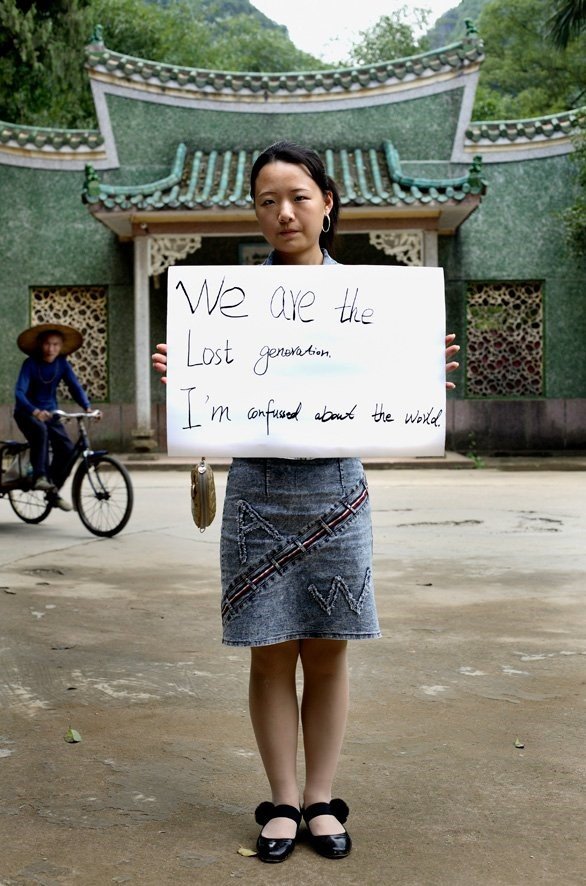 We are the
Lost generation.
I'm confused about the world.
A
W